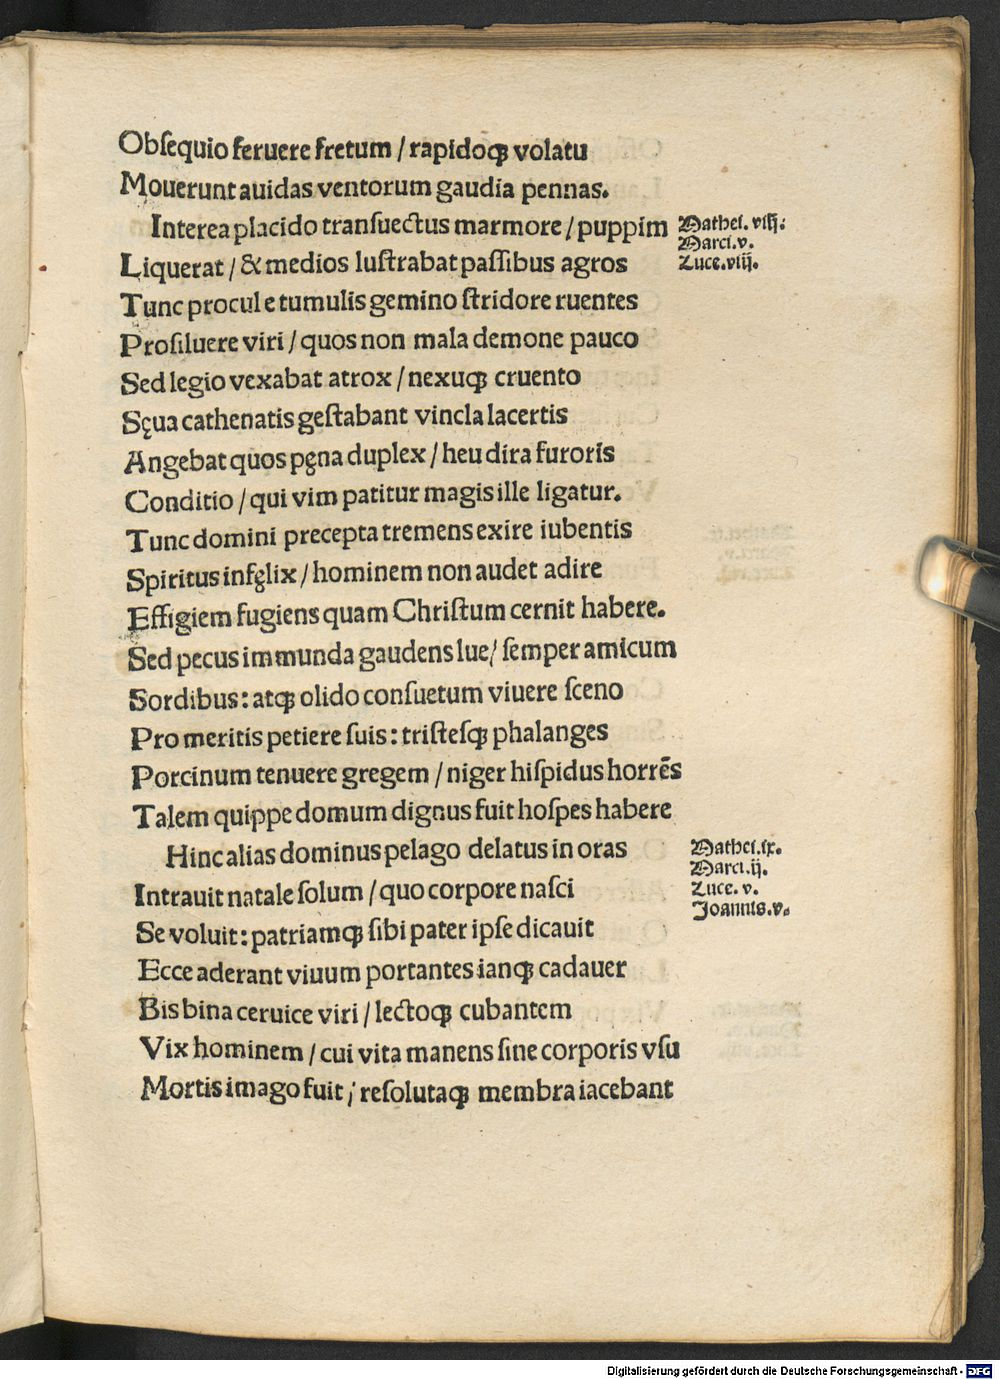 Obſequio feruere fretum / rapidoqꝫ volatu
Mouerunt auidas ventorum gaudia pennas.
Interea placido tranſuectus marmore / puppim
Mathei. viij.
Marci. v.
Luce. viij.
Liquerat / & medios luſtrabat paſſibus agros
Tunc procul e tumulis gemino ſtridore ruentes
Proſiluere viri / quos non mala demone pauco
Sed legio vexabat atrox / nexuqꝫ cruento
Sęua cathenatis geſtabant vincla lacertis
Angebat quos pęna duplex / heu dira furoris
Conditio / qui vim patitur magis ille ligatur.
Tunc domini precepta tremens exire iubentis
Spiritus infęlix / hominem non audet adire
Effigiem fugiens quam Chriſtum cernit habere.
Sed pecus immunda gaudens lue / ſemper amicum
Sordibus: atqꝫ olido conſuetum viuere ſceno
Pro meritis petiere ſuis: triſteſqꝫ phalanges
Porcinum tenuere gregem / niger hiſpidus horrẽs
Talem quippe domum dignus fuit hoſpes habere
Hinc alias dominus pelago delatus in oras
Mathei. ix.
Marci. ij.
Luce. v.
Joannis. v.
Intrauit natale ſolum / quo corpore naſci
Se voluit: patriamqꝫ ſibi pater ipſe dicauit
Ecce aderant viuum portantes ianqꝫ cadauer
Bis bina ceruice viri / lectoqꝫ cubantem
Vix hominem / cui vita manens ſine corporis vſu
Mortis imago fuit / reſolutaqꝫ membra iacebant
Digitalisierung gefördert durch die Deutsche Forschungsgemeinschaft - DFG